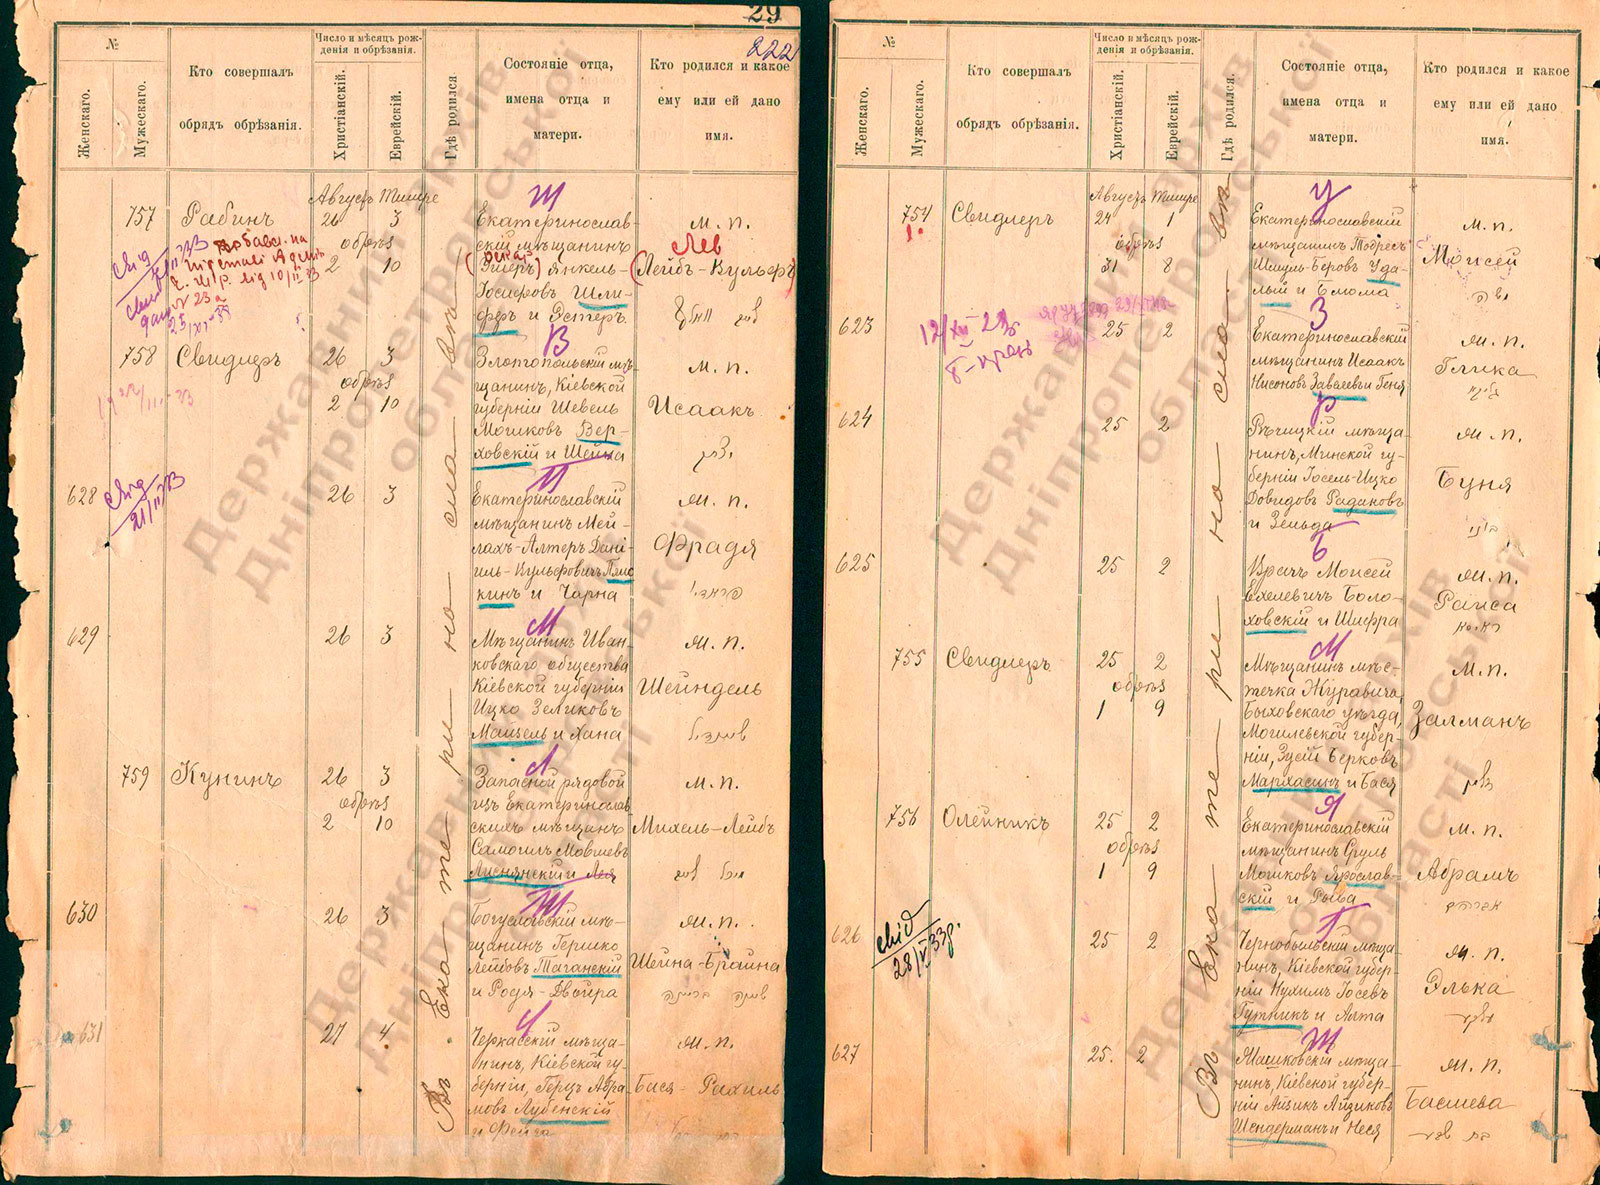 29
222
№
Женскаго.
Мужескаго.
Кто совершалъ
обрядъ обрѣзанія.
Число и мѣсяцъ рож-
денія и обрѣзанія.
Христіанскій.
Еврейскій.
Гдѣ родился
Состояніе отца,
имена отца и
матери.
Кто родился и какое
ему или ей дано
имя.
Августъ Тишре
Въ Екатеринославѣ
757 Рабинъ 26 3
обрѣз
2 10
Екатеринослав-
скій мѣщанинъ
Янкель-
Іосифовъ Шли-
феръ и Эстеръ
м. п.
Лев
(Лейбъ-Вульфъ)
758 Свидлеръ 26 3
обрѣз
2 10
Златопольскій мѣ-
щанинъ, Кіевской
губерніи Шевель
Мошковъ Вер-
ховскій и Шейна
м. п.
Исаакъ
יצחק
628 26 3
21/II 33
Екатеринославскій
мѣщанинъ Мей-
лахъ-Алтеръ Дані-
и Чарна
ж. п.
Фрадя
629 26 3
Мѣщанинъ Иван-
ковскаго общества
Кіевской губерніи
Ицко Зеликовъ
Майзель и Хана
ж. п.
Шейндель
759 Кунинъ 26 3
обрѣз
2 10
Запасной рядовой
изъ Екатеринослав
скихъ мѣщанъ
Самоилъ Мовшевъ
Лиснянскій и Лея
м. п.
Михель-Лейбъ
630 26 3
Богуславскій мѣ-
щанинъ Гершко
Лейбовъ Таганскій
и Родя-Двойра
ж. п.
Шейна-Брайна
631 27 4
Черкасскій мѣща-
нинъ, Кіевской гу-
берніи, Герцъ Абра-
мовъ Лубенскій
и Фейга
ж. п.
Бася-Рахиль
№
Женскаго.
Мужескаго.
Кто совершалъ
обрядъ обрѣзанія.
Число и мѣсяцъ рож-
денія и обрѣзанія.
Христіанскій.
Еврейскій.
Гдѣ родился.
Состояніе отца,
имена отца и
матери.
Кто родился и какое
ему или ей дано
имя.
Августъ Тишре
Въ Екатеринославѣ
754 Свидлеръ 24 1
обрѣз
31 8
Екатеринославскій
мѣщанинъ Тодресъ
Шмуль-Беровъ Уда-
лый и Блюма
м. п.
Моисей
משה
623 25 2
12/XII 29
Екатеринославскій
мѣщанинъ Исаакъ
Нисоновъ Заваевъ и Геня
ж. п.
Глика
624 25 2
Рѣчицкій мѣща-
нинъ, Минской гу-
берніи Іосель-Ицко
Довидовъ Радановъ
и Зельда
ж. п.
Буня
625 25 2
Врачъ Моисей
Ехелевичъ Боло-
ховскій и Шифра
ж. п.
Раиса
755 Свидлеръ 25 2
обрѣз
1 9
Мѣщанинъ мѣс-
течка Журавича,
Быховскаго уѣзда,
Могилевской губер-
ніи, Зусій Берковъ
Мархасинъ и Бася
м. п.
Залманъ
756 Олейникъ 25 2
обрѣз
1 9
Екатеринославскій
мѣщанинъ Сруль
Мошковъ Ярослав-
скій и Рыва
м. п.
Абрамъ
626 25 2
28/V 33р.
Чернобыльскій мѣща-
нинъ, Кіевской губер-
ніи Нухимъ Іосевъ
Гутникъ и Алта
ж. п.
Элька
627 25. 2
Машковскій мѣща-
нинъ, Кіевской губер-
ніи Айзикъ Айзиковъ
Шендерманъ и Неся
ж. п.
Басшева
בת שבע
Державний архів
Дніпропетровської
області